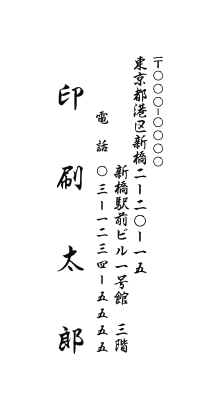 〒〇〇〇ー〇〇〇〇
東京都港区新橋二ー二〇ー一五
新橋駅前ビル一号館　三階
電　話　〇三ー一二三四ー五五五五
印刷太郎